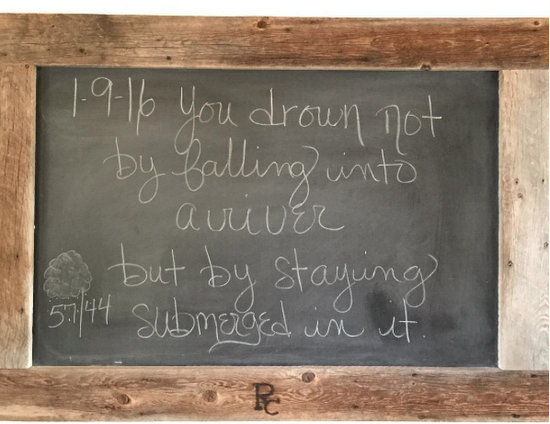 1-9-16 You drown not
by falling into
a river
but by staying
5.7/44 submerged in it.
RC